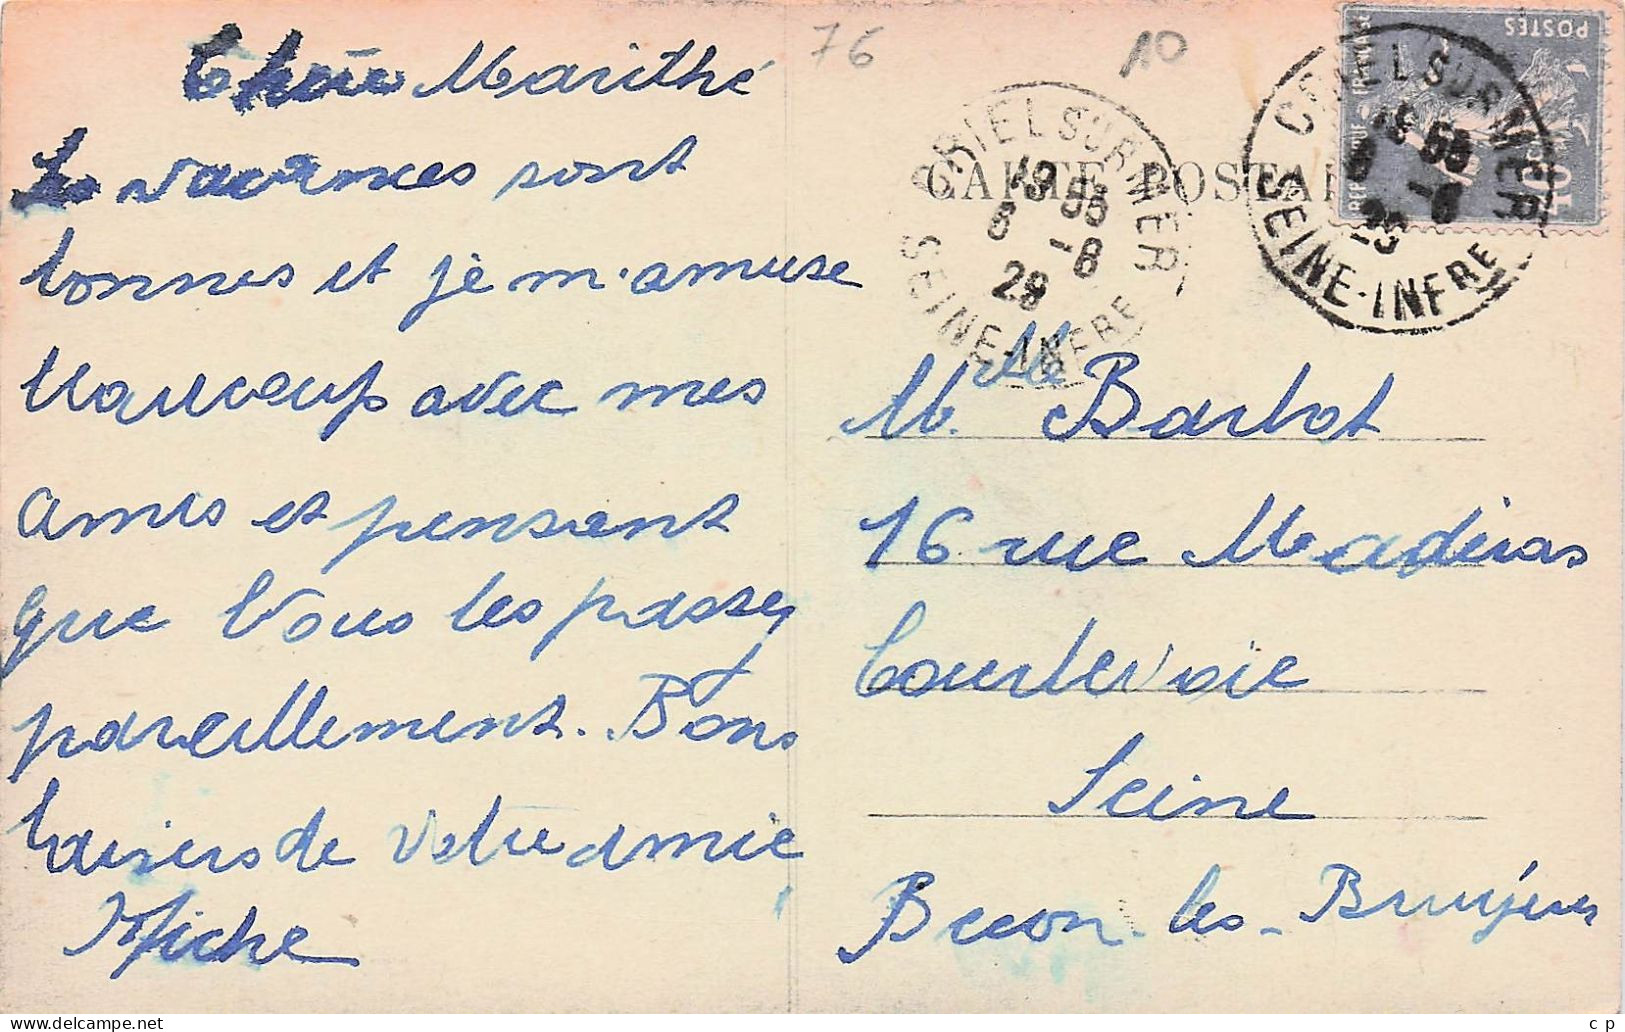 76
10
Chère Marithé
Les vacances sont
bonnes et je m'amuse
beaucoup avec mes
amis et pensant
que Vous les passez
pareillement. Bons
baisers de votre amie
Miche
CARTE POSTA
CRIEL SUR MER
19 55
6 -8
29
SEINE-INFRE
CRIEL SUR MER
55
-8
SEINE-INFRE
POSTES
10
Melle Barbot
16 rue Madiras
Courbevoie
Seine
Becon-les-Bruyères
c p